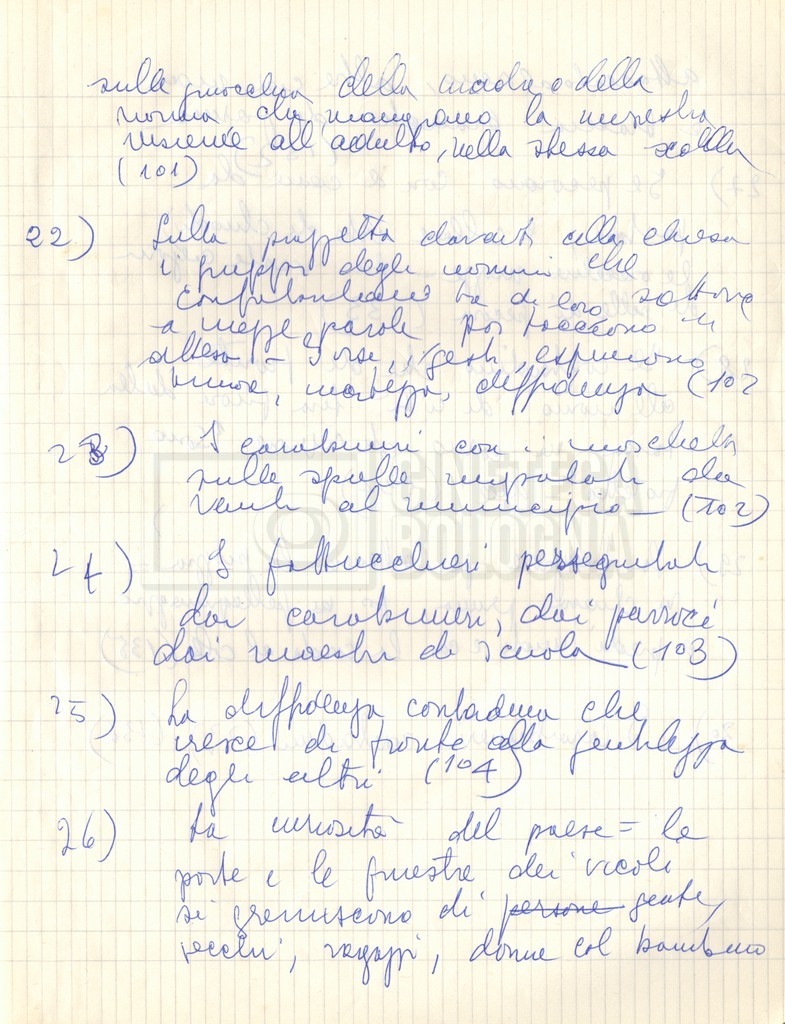 sulle ginocchia della madre o della
nonna che mangiano la minestra
insieme all'adulto, nella stessa scodella
(101)
22) Sulla piazzetta davanti alla chiesa
i gruppi degli uomini che
confabulano tra di loro sottovoce
a mezze parole poi tacciono in
attesa - I visi, i gesti, esprimono
timore, incertezza, diffidenza (102
23) I carabinieri con i moschetti
sulle spalle impalati da
vanti al municipio - (102)
24) I fattucchieri perseguitati
dai carabinieri, dai parroci
dai maestri di scuola (103)
25) La diffidenza contadina che
cresce di fronte alla gentilezza
degli altri (104)
26) La curiosità del paese = le
porte e le finestre dei vicoli
si gremiscono di persone gente,
vecchi, ragazzi, donne col bambino
CINETECA
BOLOGNA